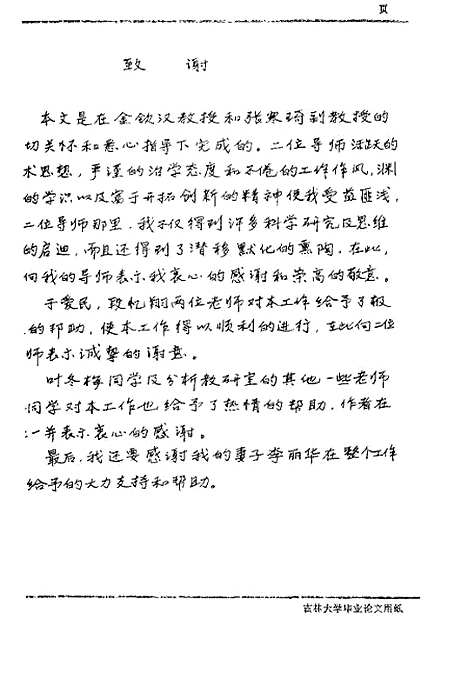 页
致 谢
本文是在金钦汉教授和张寒琦副教授的
切关怀和悉心指导下完成的。二位导师活跃的
术思想，严谨的治学态度和不倦的工作作风，渊
的学识以及富于开拓创新的精神使我受益匪浅，
二位导师那里，我不仅得到许多科学研究及思维
的启迪，而且还得到了潜移默化的熏陶，在此，
向我的导师表示我衷心的感谢和崇高的敬意。
于爱民，段忆翔两位老师对本工作给予了极
的帮助，使本工作得以顺利的进行，在此向二位
师表示诚挚的谢意。
叶冬梅同学及分析教研室的其他一些老师
同学对本工作也给予了热情的帮助，作者在
一并表示衷心的感谢。
最后，我还要感谢我的妻子李丽华在整个工作
给予的大力支持和帮助。
吉林大学毕业论文用纸